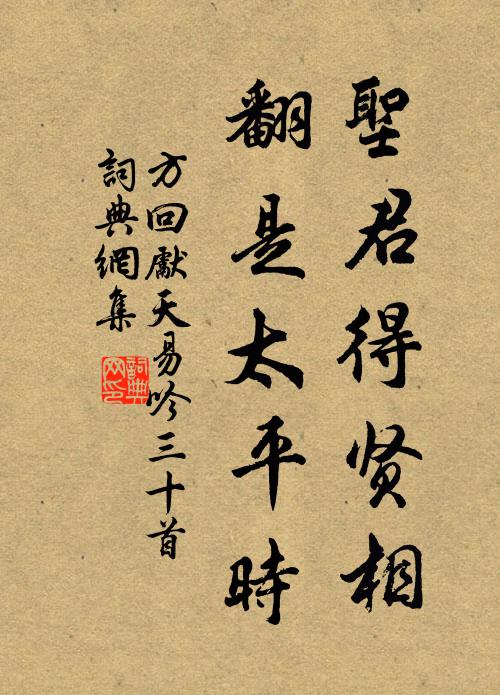 聖君得贤相
翻是太平時
方回獻天易吟三十首
詞典網集
詞典网印